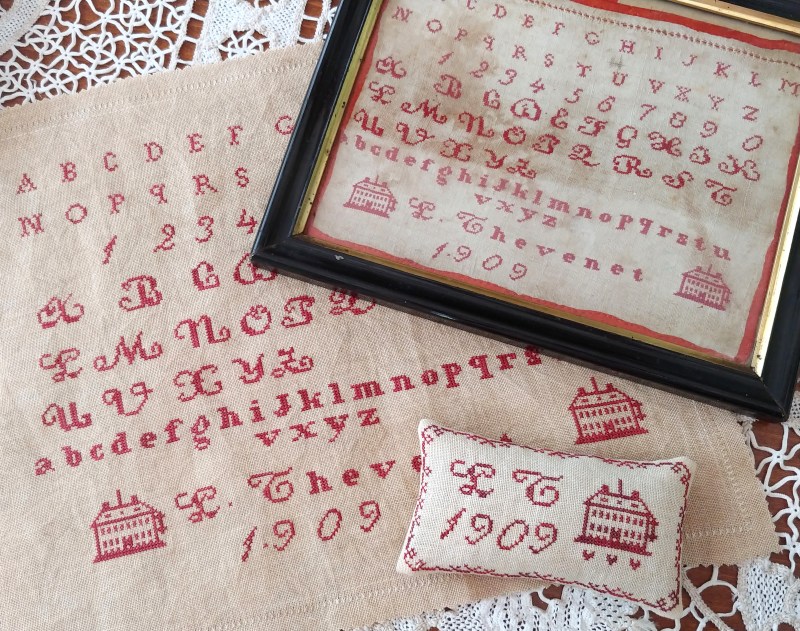 A B C D E F G
N O P Q R S
1 2 3 4
A B C D
L M N O P Q
U V X Y Z
abcdefghijklmnopqrs
vxyz
L. Theve
1909
C D E F G H I J K L M
N O P Q R S T U V X Y Z
1 2 3 4 5 6 7 8 9 0
A B C D E F G H J K
L M N O P Q R S T
U V X Y Z
abcdefghijklmnopqrstu
vxyz
L. Thevenet
1909
L T
1909